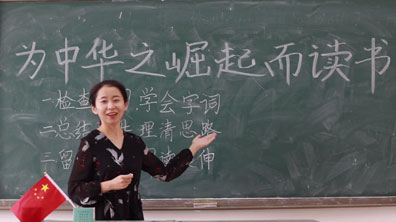 为中华之崛起而读书
一检查 学会字词
二总结 理清思路
三留 伸